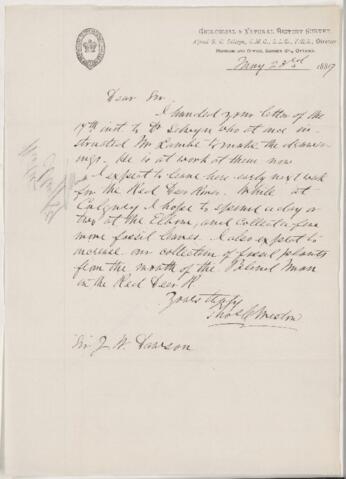 GEOLOGICAL & NATURAL HISTORY SURVEY.
Alfred R. C. Selwyn, C.M.G., L.L.D., F.R.S., Director
MUSEUM AND OFFICE, SUSSEX ST., OTTAWA.
May 23rd 1889
Dear Sir.
I handed your letter of the
17th inst. to Dr Selwyn who at once in-
structed Mr Lambe to make the draw-
ings. He is at work at them now
I expect to leave here early next week
for the Red Deer River. While at
Calgary I hope to spend a day or
two at the Elbow, and collect a few
more fossil leaves. I also expect to
increase our collection of fossil plants
from the mouth of the Blind Man
in the Red Deer R.
Yours truly
Thos C Weston
Sir J. W. Dawson